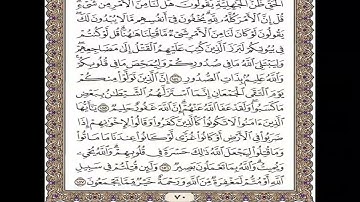 ٱلْحَقِّ ظَنَّ ٱلْجَٰهِلِيَّةِ يَقُولُونَ هَل لَّنَا مِنَ ٱلْأَمْرِ مِن شَىْءٍ
قُلْ إِنَّ ٱلْأَمْرَ كُلَّهُۥ لِلَّهِ يُخْفُونَ فِىٓ أَنفُسِهِم مَّا لَا يُبْدُونَ لَكَ
يَقُولُونَ لَوْ كَانَ لَنَا مِنَ ٱلْأَمْرِ شَىْءٌ مَّا قُتِلْنَا هَٰهُنَا قُل لَّوْ كُنتُمْ
فِى بُيُوتِكُمْ لَبَرَزَ ٱلَّذِينَ كُتِبَ عَلَيْهِمُ ٱلْقَتْلُ إِلَىٰ مَضَاجِعِهِمْ
وَلِيَبْتَلِىَ ٱللَّهُ مَا فِى صُدُورِكُمْ وَلِيُمَحِّصَ مَا فِى قُلُوبِكُمْ
وَٱللَّهُ عَلِيمٌۢ بِذَاتِ ٱلصُّدُورِ ١٥٤ إِنَّ ٱلَّذِينَ تَوَلَّوْا۟ مِنكُمْ
يَوْمَ ٱلْتَقَى ٱلْجَمْعَانِ إِنَّمَا ٱسْتَزَلَّهُمُ ٱلشَّيْطَٰنُ بِبَعْضِ
مَا كَسَبُوا۟ وَلَقَدْ عَفَا ٱللَّهُ عَنْهُمْ إِنَّ ٱللَّهَ غَفُورٌ حَلِيمٌ ١٥٥ يَٰٓأَيُّهَا
ٱلَّذِينَ ءَامَنُوا۟ لَا تَكُونُوا۟ كَٱلَّذِينَ كَفَرُوا۟ وَقَالُوا۟ لِإِخْوَٰنِهِمْ إِذَا
ضَرَبُوا۟ فِى ٱلْأَرْضِ أَوْ كَانُوا۟ غُزًّى لَّوْ كَانُوا۟ عِندَنَا مَا مَاتُوا۟
وَمَا قُتِلُوا۟ لِيَجْعَلَ ٱللَّهُ ذَٰلِكَ حَسْرَةً فِى قُلُوبِهِمْ وَٱللَّهُ يُحْىِۦ
وَيُمِيتُ وَٱللَّهُ بِمَا تَعْمَلُونَ بَصِيرٌ ١٥٦ وَلَئِن قُتِلْتُمْ فِى سَبِيلِ
ٱللَّهِ أَوْ مُتُّمْ لَمَغْفِرَةٌ مِّنَ ٱللَّهِ وَرَحْمَةٌ خَيْرٌ مِّمَّا يَجْمَعُونَ ١٥٧
٧٠